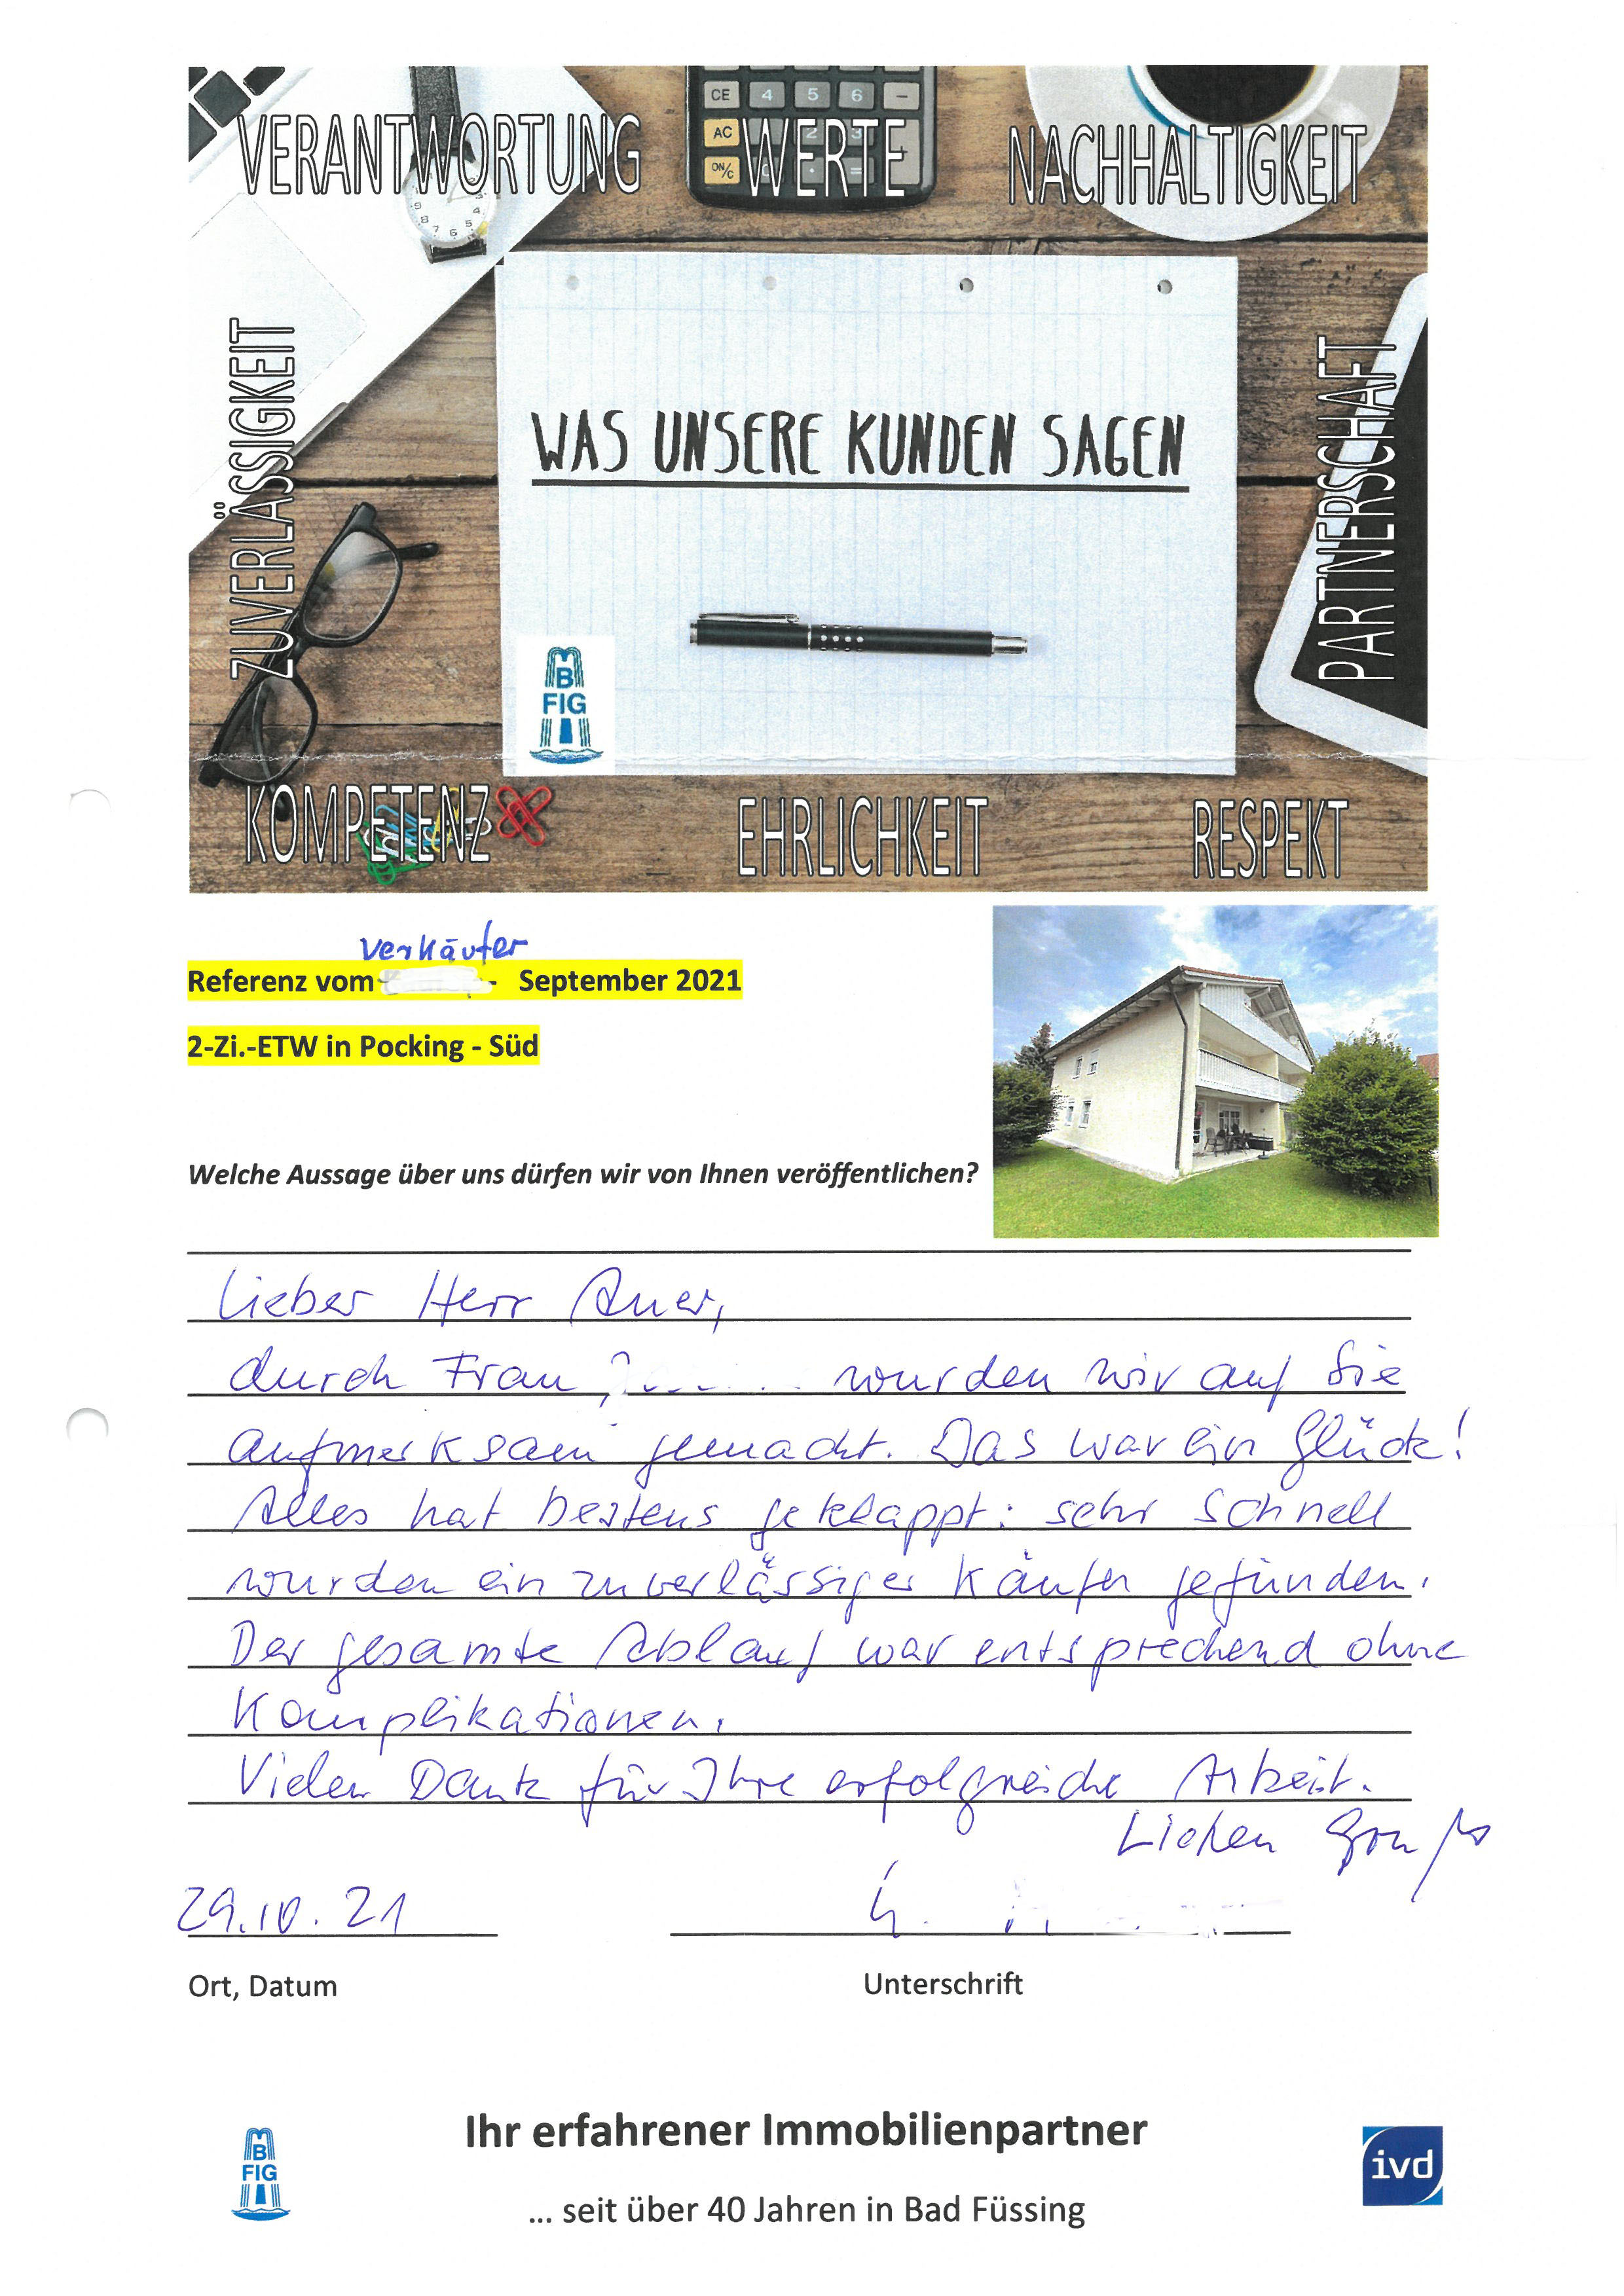 CE 4 5 6 −
AC 2 3 +
ON/C . =
VERANTWORTUNG WERTE NACHHALTIGKEIT
ZUVERLÄSSIGKEIT
WAS UNSERE KUNDEN SAGEN
PARTNERSCHAFT
B
FIG
KOMPETENZ EHRLICHKEIT RESPEKT
Verkäufer
Referenz vom - September 2021
2-Zi.-ETW in Pocking - Süd
Welche Aussage über uns dürfen wir von Ihnen veröffentlichen?
Lieber Herr Auer,
durch Frau wurden wir auf Sie
aufmerksam gemacht. Das war ein Glück!
Alles hat bestens geklappt: sehr schnell
wurden ein zuverlässiger Käufer gefunden.
Der gesamte Ablauf war entsprechend ohne
Komplikationen.
Vielen Dank für Ihre erfolgreiche Arbeit.
Lieben Gruß
29.10.21
Ort, Datum Unterschrift
Ihr erfahrener Immobilienpartner
B
FIG
ivd
... seit über 40 Jahren in Bad Füssing